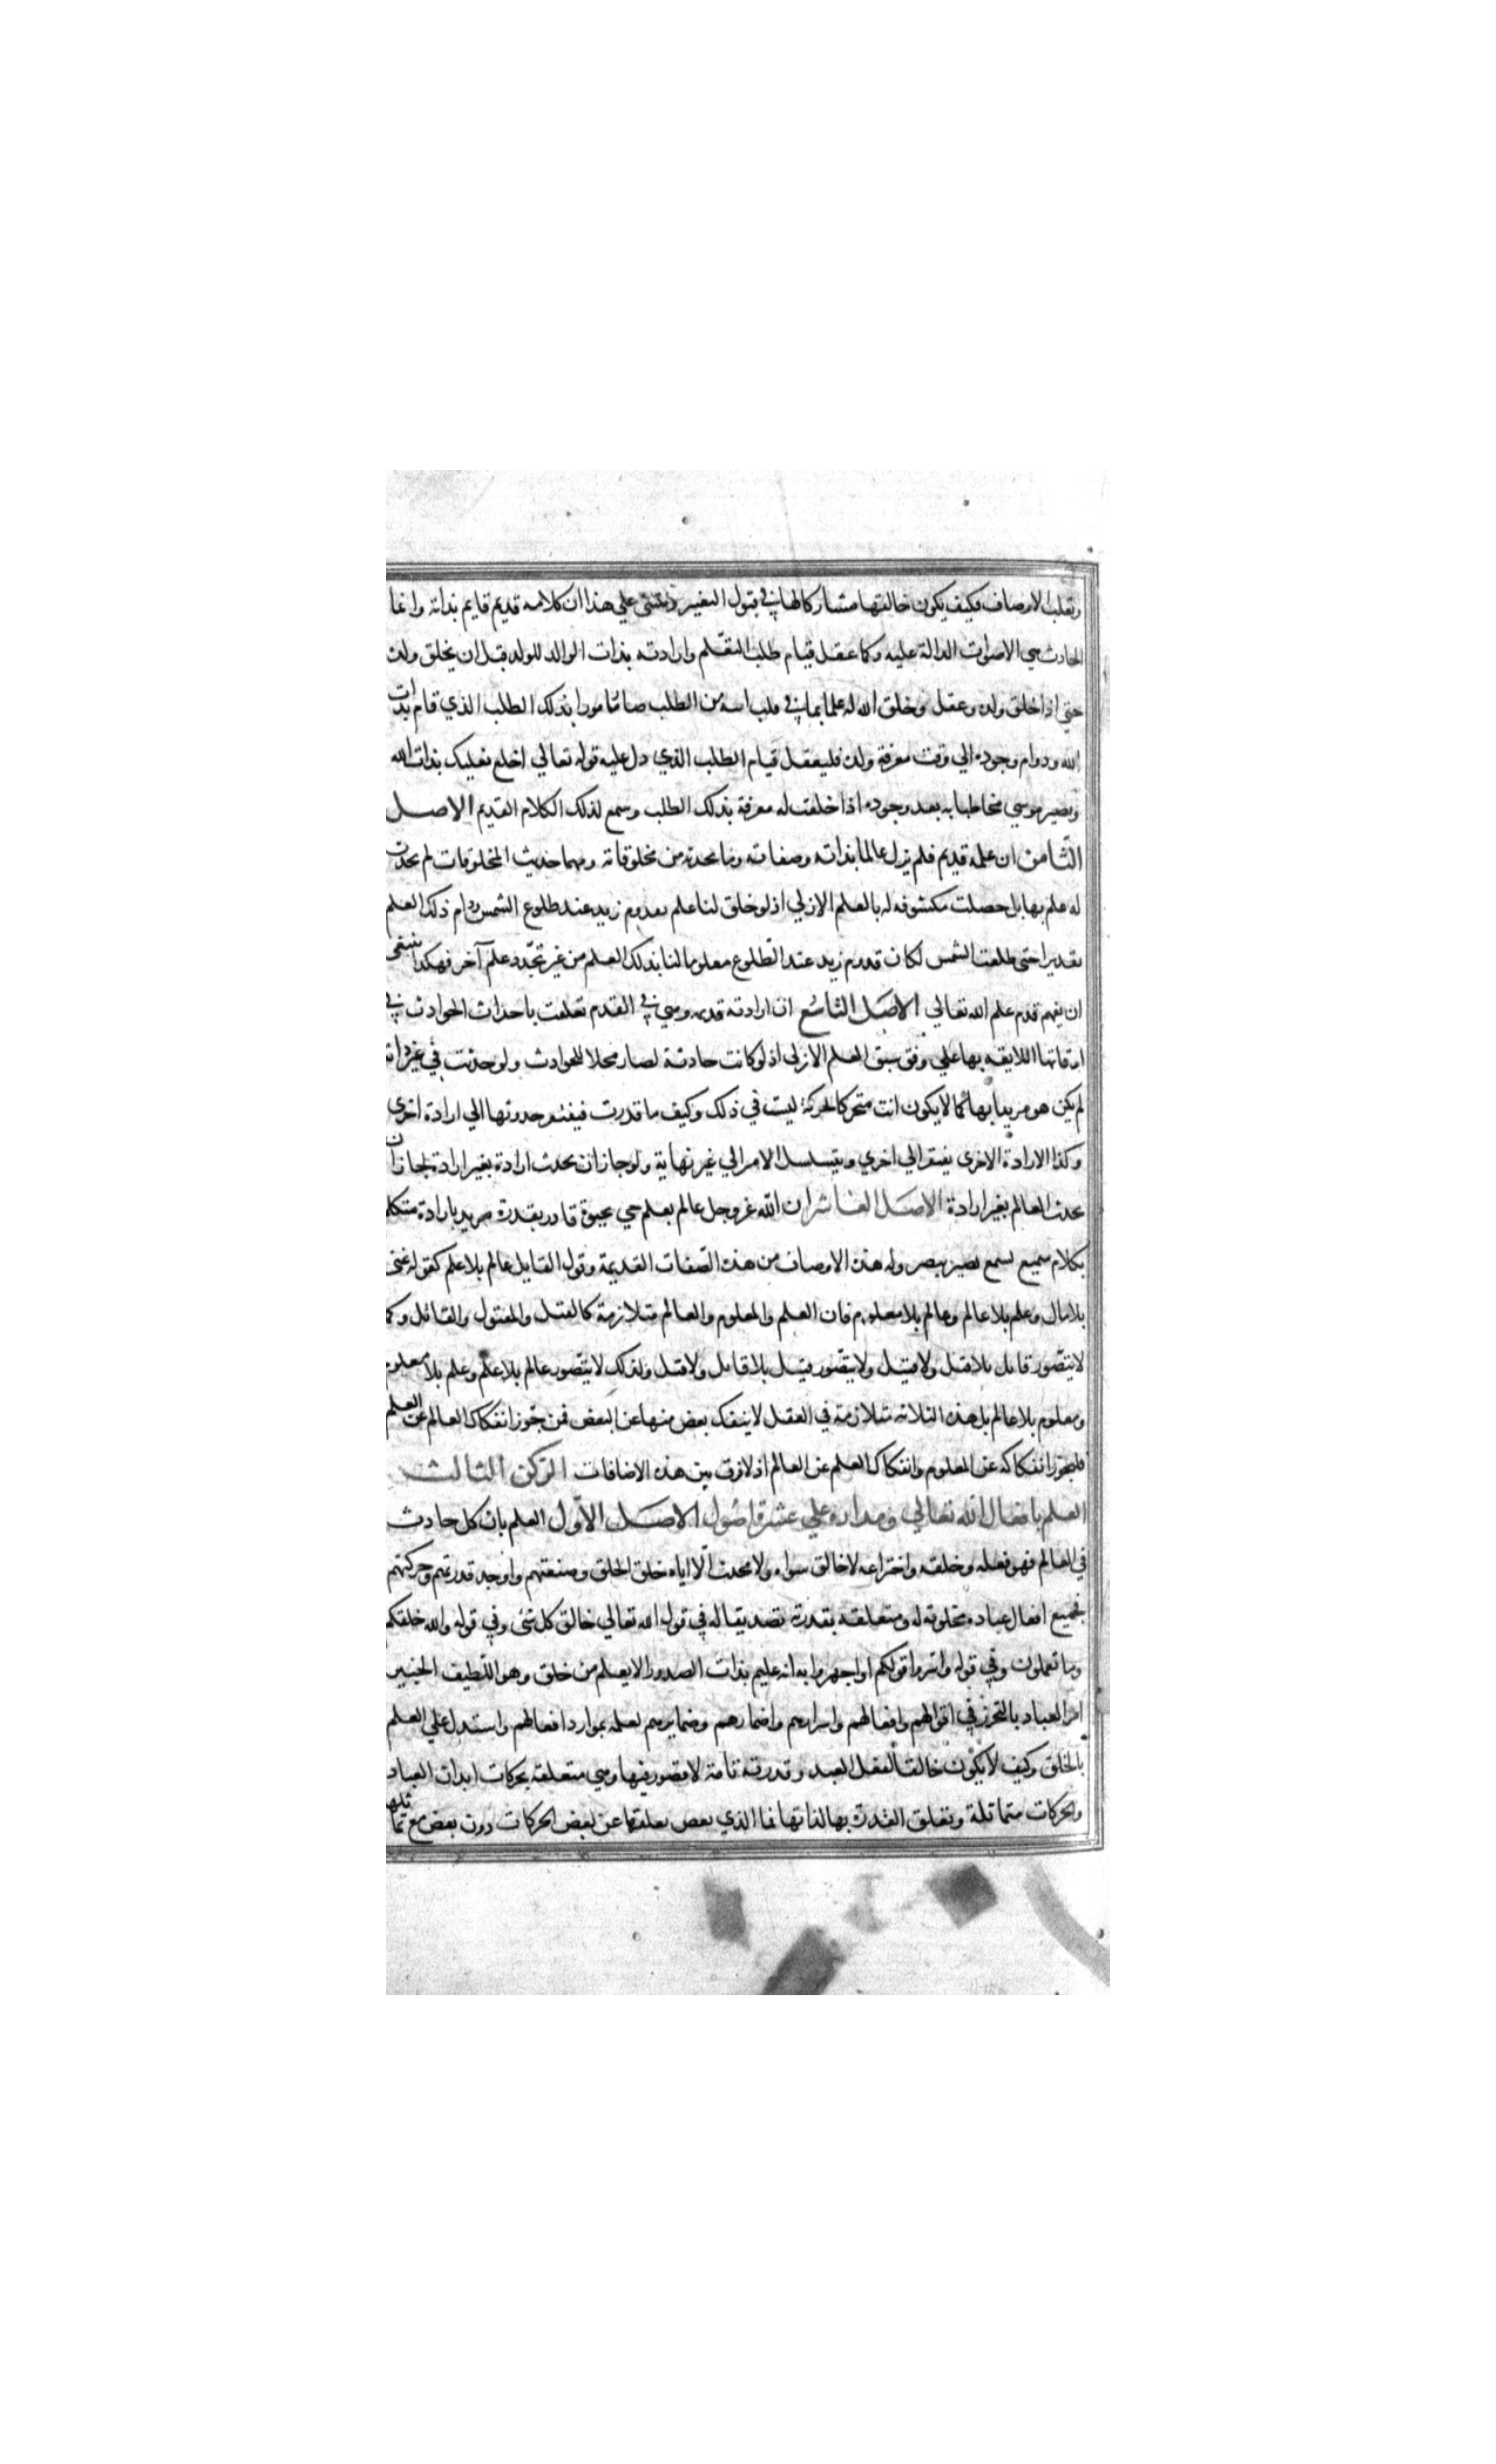 وتقلب الاوصاف فكيف يكون خالقها مشاركا لها في قبول التغير وينبني علي هذا ان كلامه قديم قايم بذاته وانما
الحادث هي الاصوات الدالة عليه وكما عقل قيام طلب التعلم وارادته بذات الوالد للولد قبل ان يخلق ولده
حتي اذا خلق ولده وعقل وخلق الله له علما بما في قلب ابيه من الطلب صار مامورا بذلك الطلب الذي قام بذات
الله ودوام وجوده الي وقت معرفة ولده فليعقل قيام الطلب الذي دل عليه قوله تعالي اخلع نعليك بذات الله
ويصير موسي مخاطبا به بعد وجوده اذا خلقت له معرفة بذلك الطلب وسمع لذلك الكلام القديم الاصل
الثامن ان علمه قديم فلم يزل عالما بذاته وصفاته وما يحدثه من مخلوقاته ومهما حدث المخلوقات لم يحدث
له علم بها بل حصلت مكشوفه له بالعلم الازلي اذ لو خلق لنا علم بقدوم زيد عند طلوع الشمس ودام ذلك العلم
تقديرا حتي طلعت الشمس لكان قدوم زيد عند الطلوع معلوما لنا بذلك العلم من غير تجدد علم آخر فهكذا ينبغي
ان يفهم قدم علم الله تعالي الاصل التاسع ان ارادته قديمه وهي في القدم تعلقت باحداث الحوادث في
اوقاتها اللايقه بها علي وفق سبق العلم الازلي اذ لو كانت حادثة لصار محلا للحوادث ولو حدثت في غير ذاته
لم يكن هو مريدا بها كما لا يكون انت متحركا بحركة ليست في ذلك وكيف ما قدرت فيفتقر حدوثها الي ارادة اخري
وكذا الارادة الاخري يفتقر الي اخري ويتسلسل الامر الي غير نهاية ولو جاز ان يحدث ارادة بغير ارادة لجاز ان
يحدث العالم بغير ارادة الاصل العاشر ان الله عز وجل عالم بعلم حي بحيوة قادر بقدرة مريد بارادة متكلم
بكلام سميع بسمع بصير ببصر وله هذه الاوصاف من هذه الصفات القديمة وقول القايل عالم بلا علم كقوله غني
بلا مال وعلم بلا عالم وعالم بلا معلوم فان العلم والمعلوم والعالم متلازمة كالقتل والمقتول والقاتل وكما
لا يتصور قاتل بلا قتل ولا قتيل ولا يتصور قتيل بلا قاتل ولا قتل ولذلك لا يتصور عالم بلا علم وعلم بلا معلوم
ومعلوم بلا عالم بل هذه الثلاثه متلازمة في العقل لا ينفك بعض منها عن البعض فمن جوز انفكاك العالم عن العلم
فليجوز انفكاكه عن المعلوم وانفكاك العلم عن العالم اذ لا فرق بين هذه الاضافات الركن الثالث
العلم بافعال الله تعالي ومداره علي عشرة اصول الاصل الاول العلم بان كل حادث
في العالم فهو فعله وخلقه واختراعه لا خالق سواه ولا محدث الا اياه خلق الخلق وصنعتهم واوجد قدرتهم وحركتهم
فجميع افعال عباده مخلوقه له ومتعلقه بقدرته تصديقا له في قوله الله تعالي خالق كل شئ وفي قوله والله خلقكم
وما تعملون وفي قوله واسروا قولكم او اجهروا به انه عليم بذات الصدور الا يعلم من خلق وهو اللطيف الخبير
امر العباد بالتحرز في اقوالهم وافعالهم واسرارهم واضمارهم وضمايرهم لعلمه بموارد افعالهم واستدل علي العلم
بالخلق وكيف لا يكون خالقا لفعل العبد وقدرته تامة لا قصور فيها وهي متعلقة بحركات ابدان العباد
والحركات متماثلة وتعلق القدرة بها لذاتها فما الذي تعلقها عن بعض الحركات دون بعض مع تماثلها